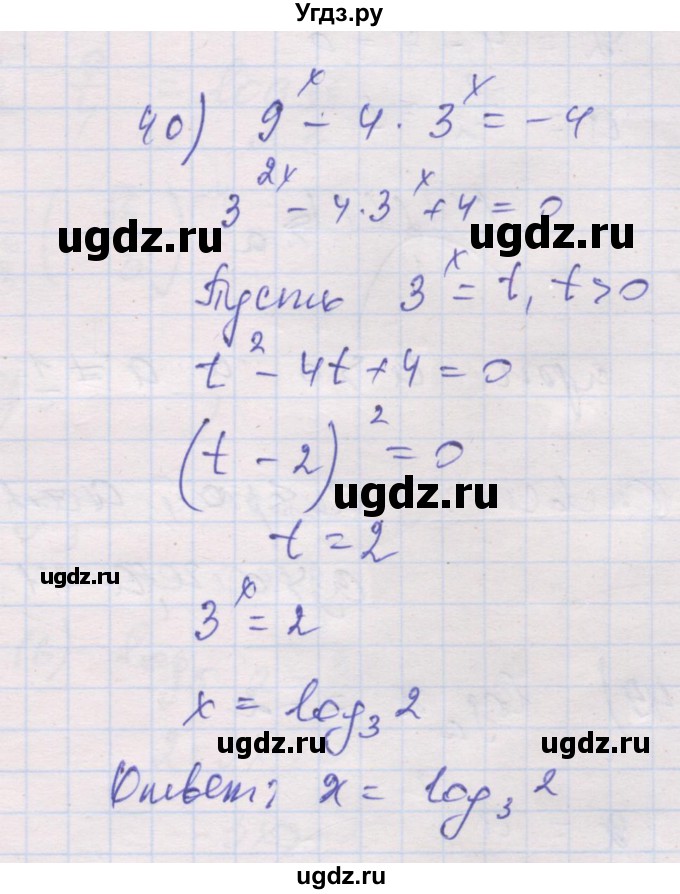 Угдз.ру
40) 9^x - 4 · 3^x = -4
3^{2x} - 4 · 3^x + 4 = 0
ugdz.ru
ugdz.ru
Пусть 3^x = t, t > 0
t^2 - 4t + 4 = 0
(t - 2)^2 = 0
ugdz.ru
t = 2
ugdz.ru
3^x = 2
x = log_3 2
ugdz.ru
ugdz.ru
Ответ: x = log_3 2
ugdz.ru
ugdz.ru